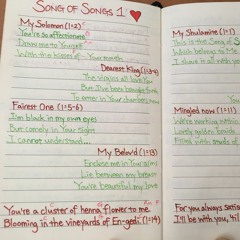 Song of Songs 1
My Solomon (1=2)
You're so affectionate
Draw me to Yourself
With the kisses of Your mouth
Dearest King (1=3-4)
The virgins all love You
But I've been brought
To honor in Your chambers
Fairest One (1=5-6)
I am black in my own eyes
But comely in Your sight
I cannot understand...
My Belov'd (1=13)
Enclose me in Your arms
Lie between my breasts
You're beautiful my love
You're a cluster of henna flower to me
Blooming in the vineyards of En-gedi (1=14)
My Shulamite (1=1)
This is the Song of S
Which belong to Me
I share it all with you
Mingled now (1=11)
We're working within
Lovely golden
Filled with studs of
For you always satis
I'll be with you, 'til